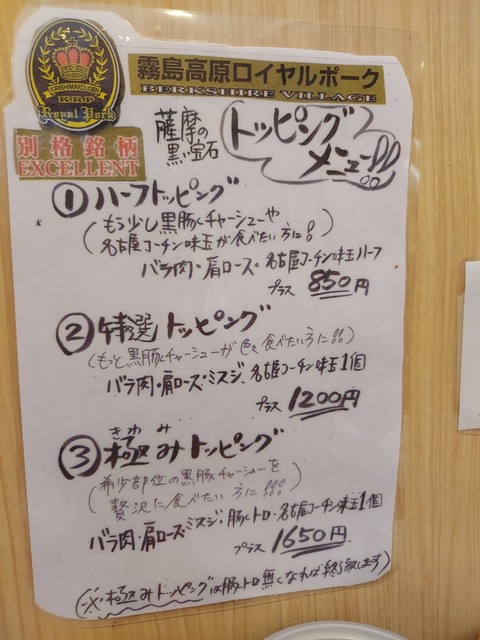 KIRISHIMAKOUGEN
KRP
Royal Pork
霧島高原ロイヤルポーク
BERKSHIRE VILLAGE
別格銘柄
EXCELLENT
薩摩の
黒い宝石
トッピング
メニュー!!
① ハーフトッピング
(もう少し黒豚チャーシューや
名古屋コーチン味玉が食べたい方に!)
バラ肉・肩ロース・名古屋コーチン味玉ハーフ
プラス 850円
② 特選トッピング
(もっと黒豚チャーシューが色々食べたい方に!!)
バラ肉・肩ロース・ミスジ、名古屋コーチン味玉1個
プラス 1200円
きわ
③ 極みトッピング
(希少部位の黒豚チャーシューを
贅沢に食べたい方に!!!)
バラ肉・肩ロース・ミスジ・豚トロ・名古屋コーチン味玉1個
プラス 1650円
(※極みトッピングは豚トロ無くなれば終了致します)